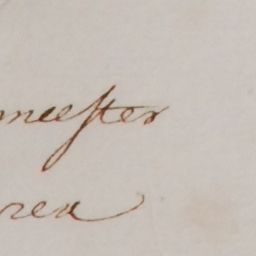 meester
rea